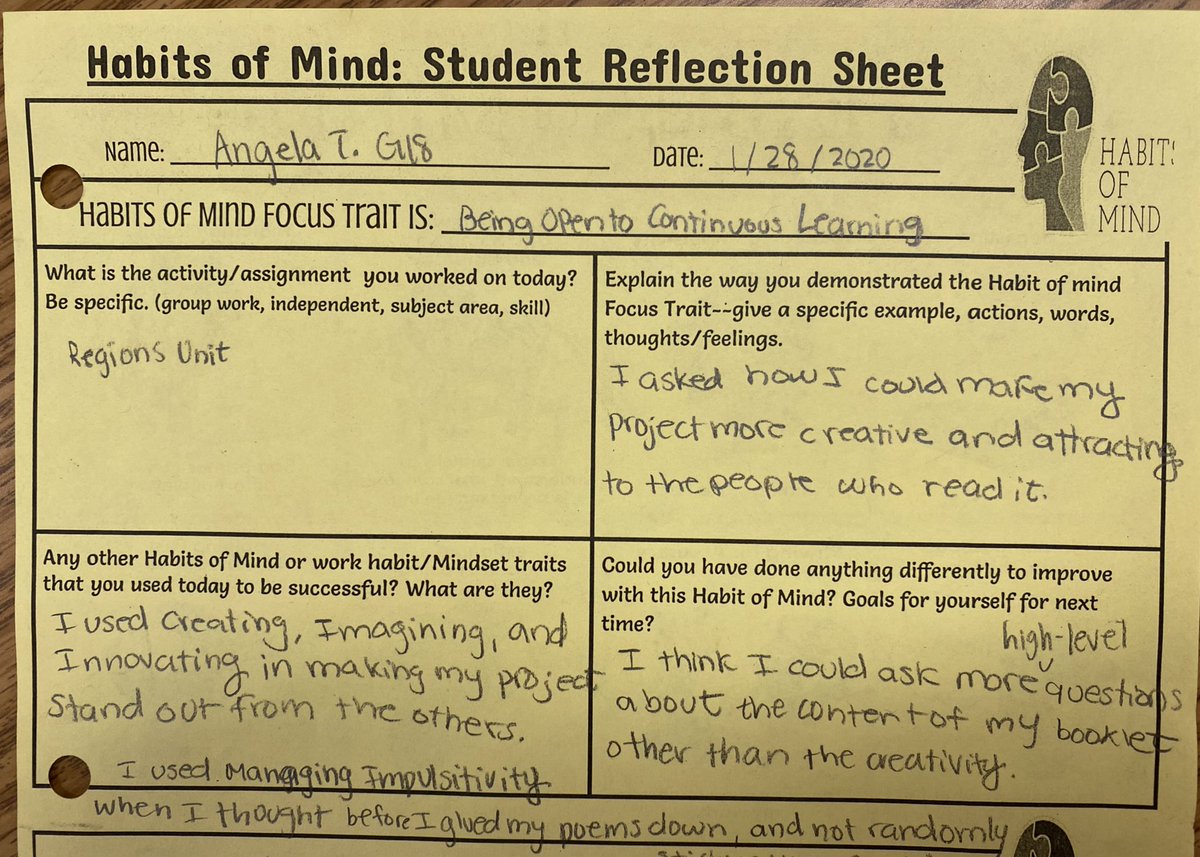 Habits of Mind: Student Reflection Sheet
Name: Angela T. G18
Date: 1/28/2020
HABITS OF MIND
HABITS OF MIND FOCUS TRAIT IS: Being Open to Continuous Learning
What is the activity/assignment you worked on today?
Be specific. (group work, independent, subject area, skill)
Regions Unit
Explain the way you demonstrated the Habit of mind
Focus Trait--give a specific example, actions, words,
thoughts/feelings.
I asked how I could make my
project more creative and attracting
to the people who read it.
Any other Habits of Mind or work habit/Mindset traits
that you used today to be successful? What are they?
I used Creating, Imagining, and
Innovating in making my project
stand out from the others.
I used Managing Impulsitivity
when I thought before I glued my poems down, and not randomly
Could you have done anything differently to improve
with this Habit of Mind? Goals for yourself for next
time?
I think I could ask more high-level questions
about the content of my booklet
other than the creativity.